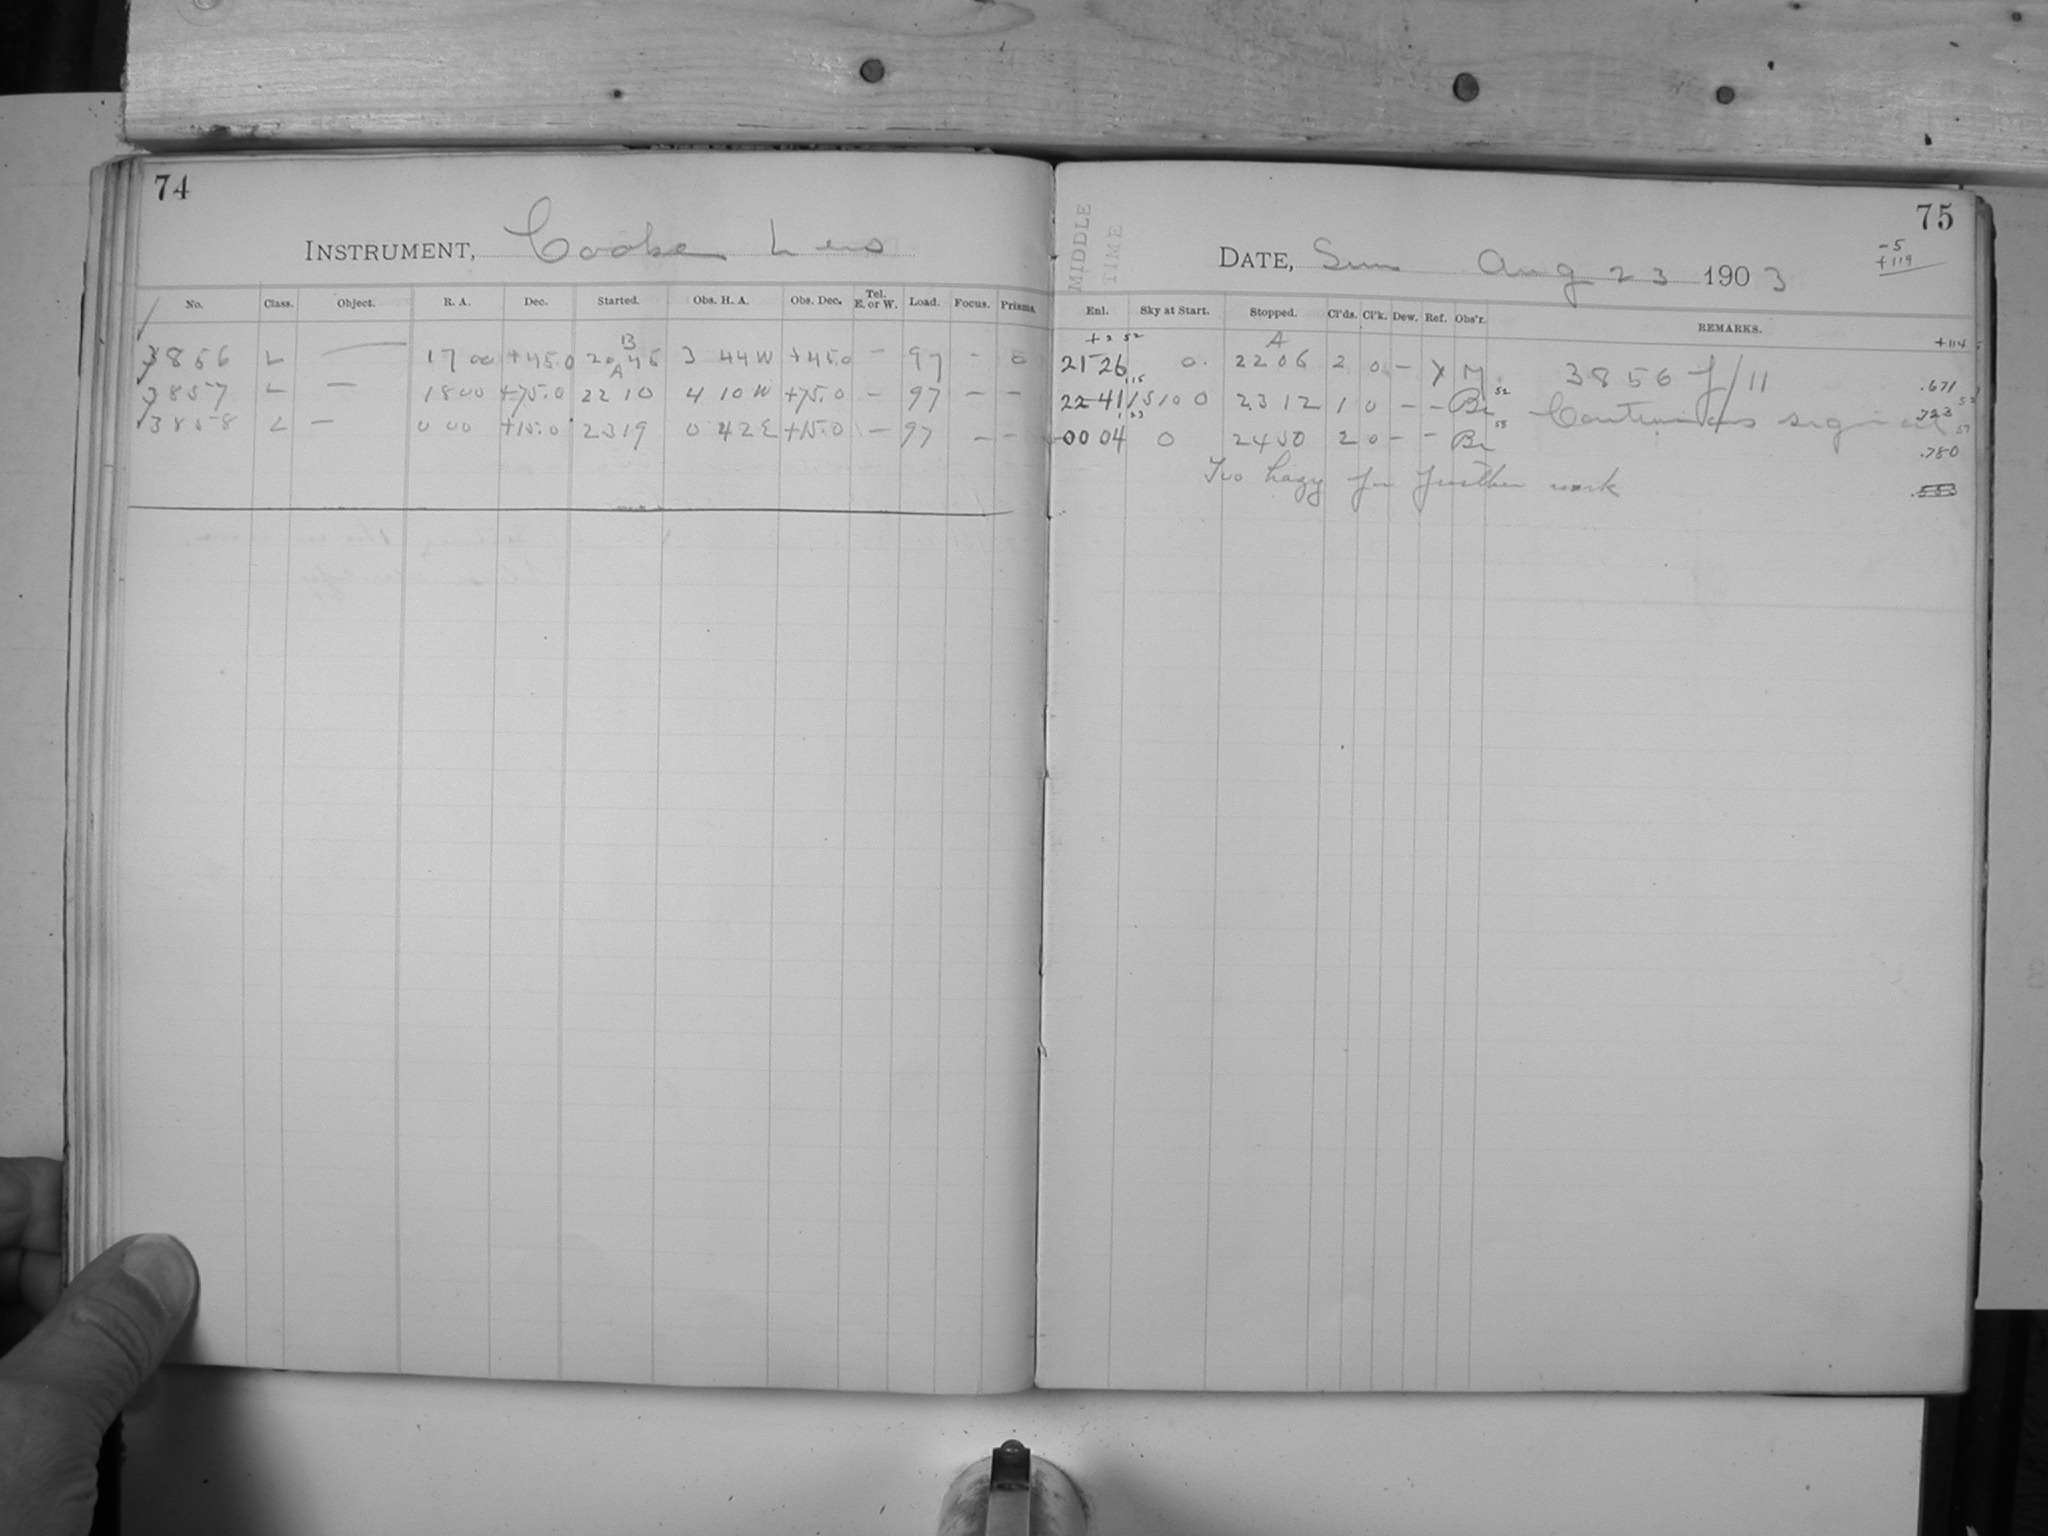 74
INSTRUMENT, Cooke Lens
No. Class. Object. R. A. Dec. Started. Obs. H. A. Obs. Dec. Tel. E. or W. Load. Focus. Prisms.
B
3856 L — 17 00 +45.0 20 46 3 44 W +45.0 — 97 - 0
A
3857 L — 18 00 +75.0 22 10 4 10 W +75.0 — 97 — —
3858 L — 0 00 +15.0 23 19 0 42 E +15.0 — 97 — —
75
MIDDLE
TIME
DATE, Sun Aug 23 1903
-5
+119
Enl. Sky at Start. Stopped. Cl'ds. Cl'k. Dew. Ref. Obs'r. REMARKS.
+2 52 A +114
21 26 0. 22 06 2 0 — Y M 3856 f/11 .671
22 41 15100 23 12 1 0 — — Br 52 Continuous signal .723
00 04 0 24 50 2 0 — — Br 58 .780
Too hazy for further work